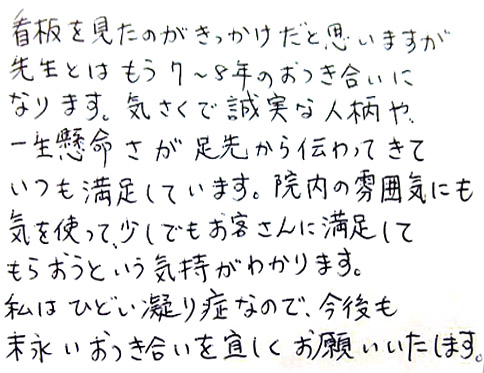 看板を見たのがきっかけだと思いますが
先生とはもう7〜8年のおつき合いに
なります。気さくで誠実な人柄や、
一生懸命さが足先から伝わってきて
いつも満足しています。院内の雰囲気にも
気を使って、少しでもお客さんに満足して
もらおうという気持がわかります。
私はひどい凝り症なので、今後も
末永いおつき合いを宜しくお願いいたします。